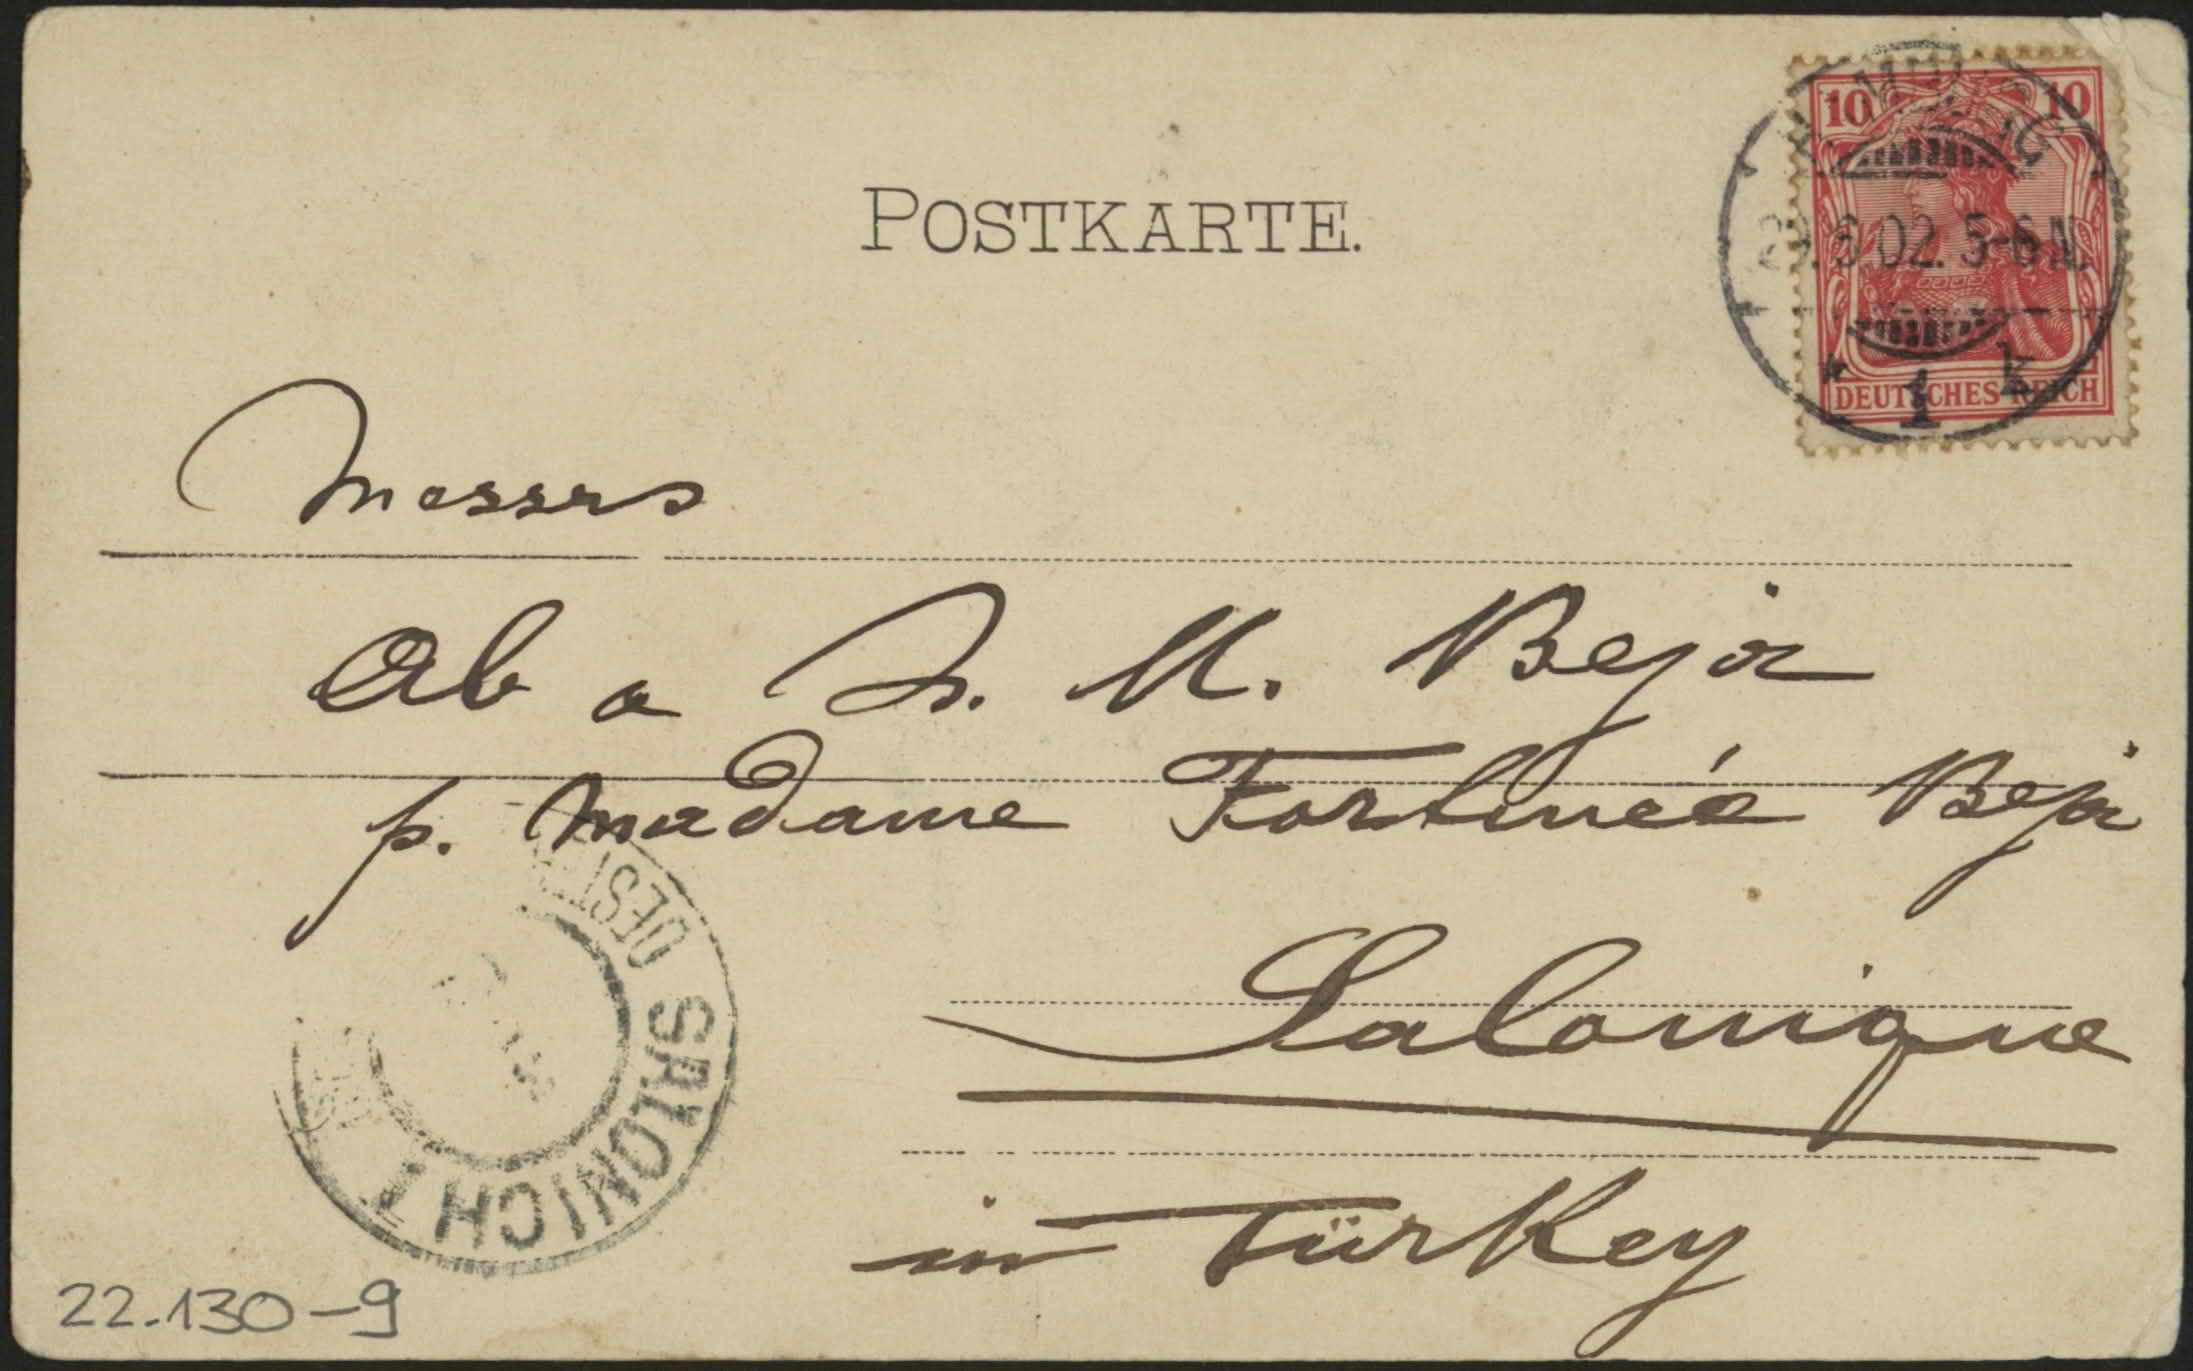 POSTKARTE.
10 10
.02. 5-6 N.
* 1 k
DEUTSCHES REICH
Messrs
Ab a M. Beja
p. Madame Fortunée Beja
Salonique
in Türkey
SALONICH 1
OEST
22.130-9